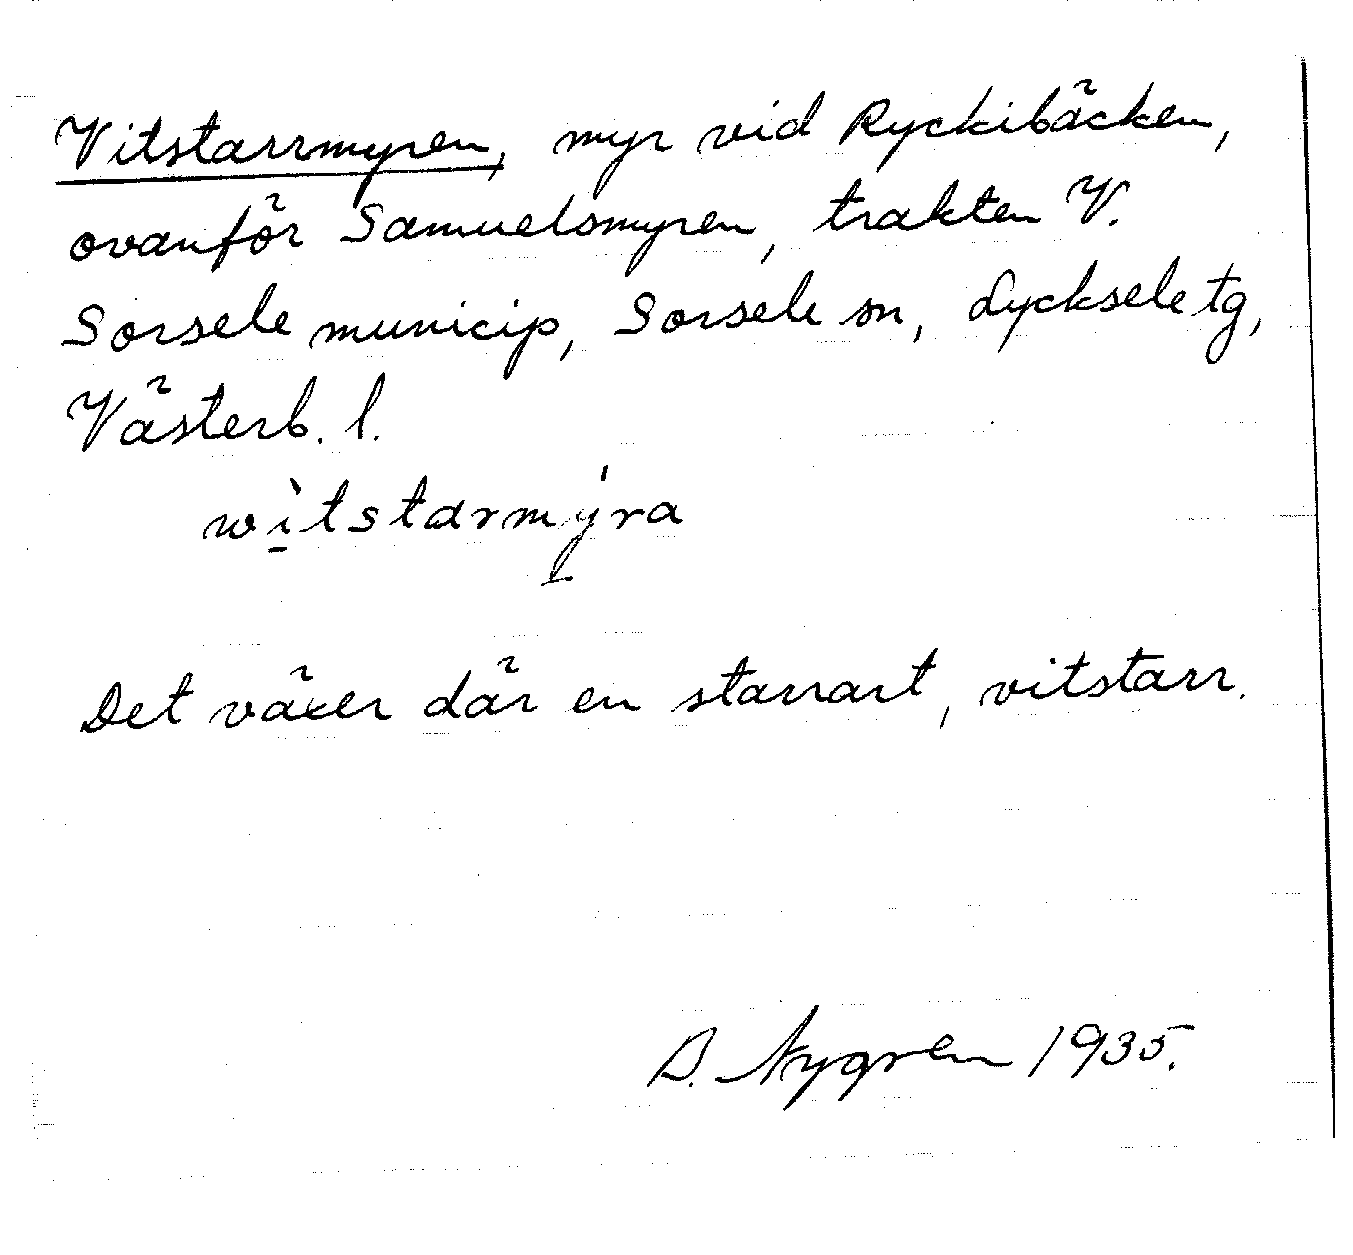 Vitstarrmyren, myr vid Ryckibäcken,
ovanför Samuelsmyren, trakten V.
Sorsele municip, Sorsele sn, Lycksele tg,
Västerb. l.
wı̱̀tstarmý̱ra
Det växer där en starrart, vitstarr.
D. Nygren 1935.